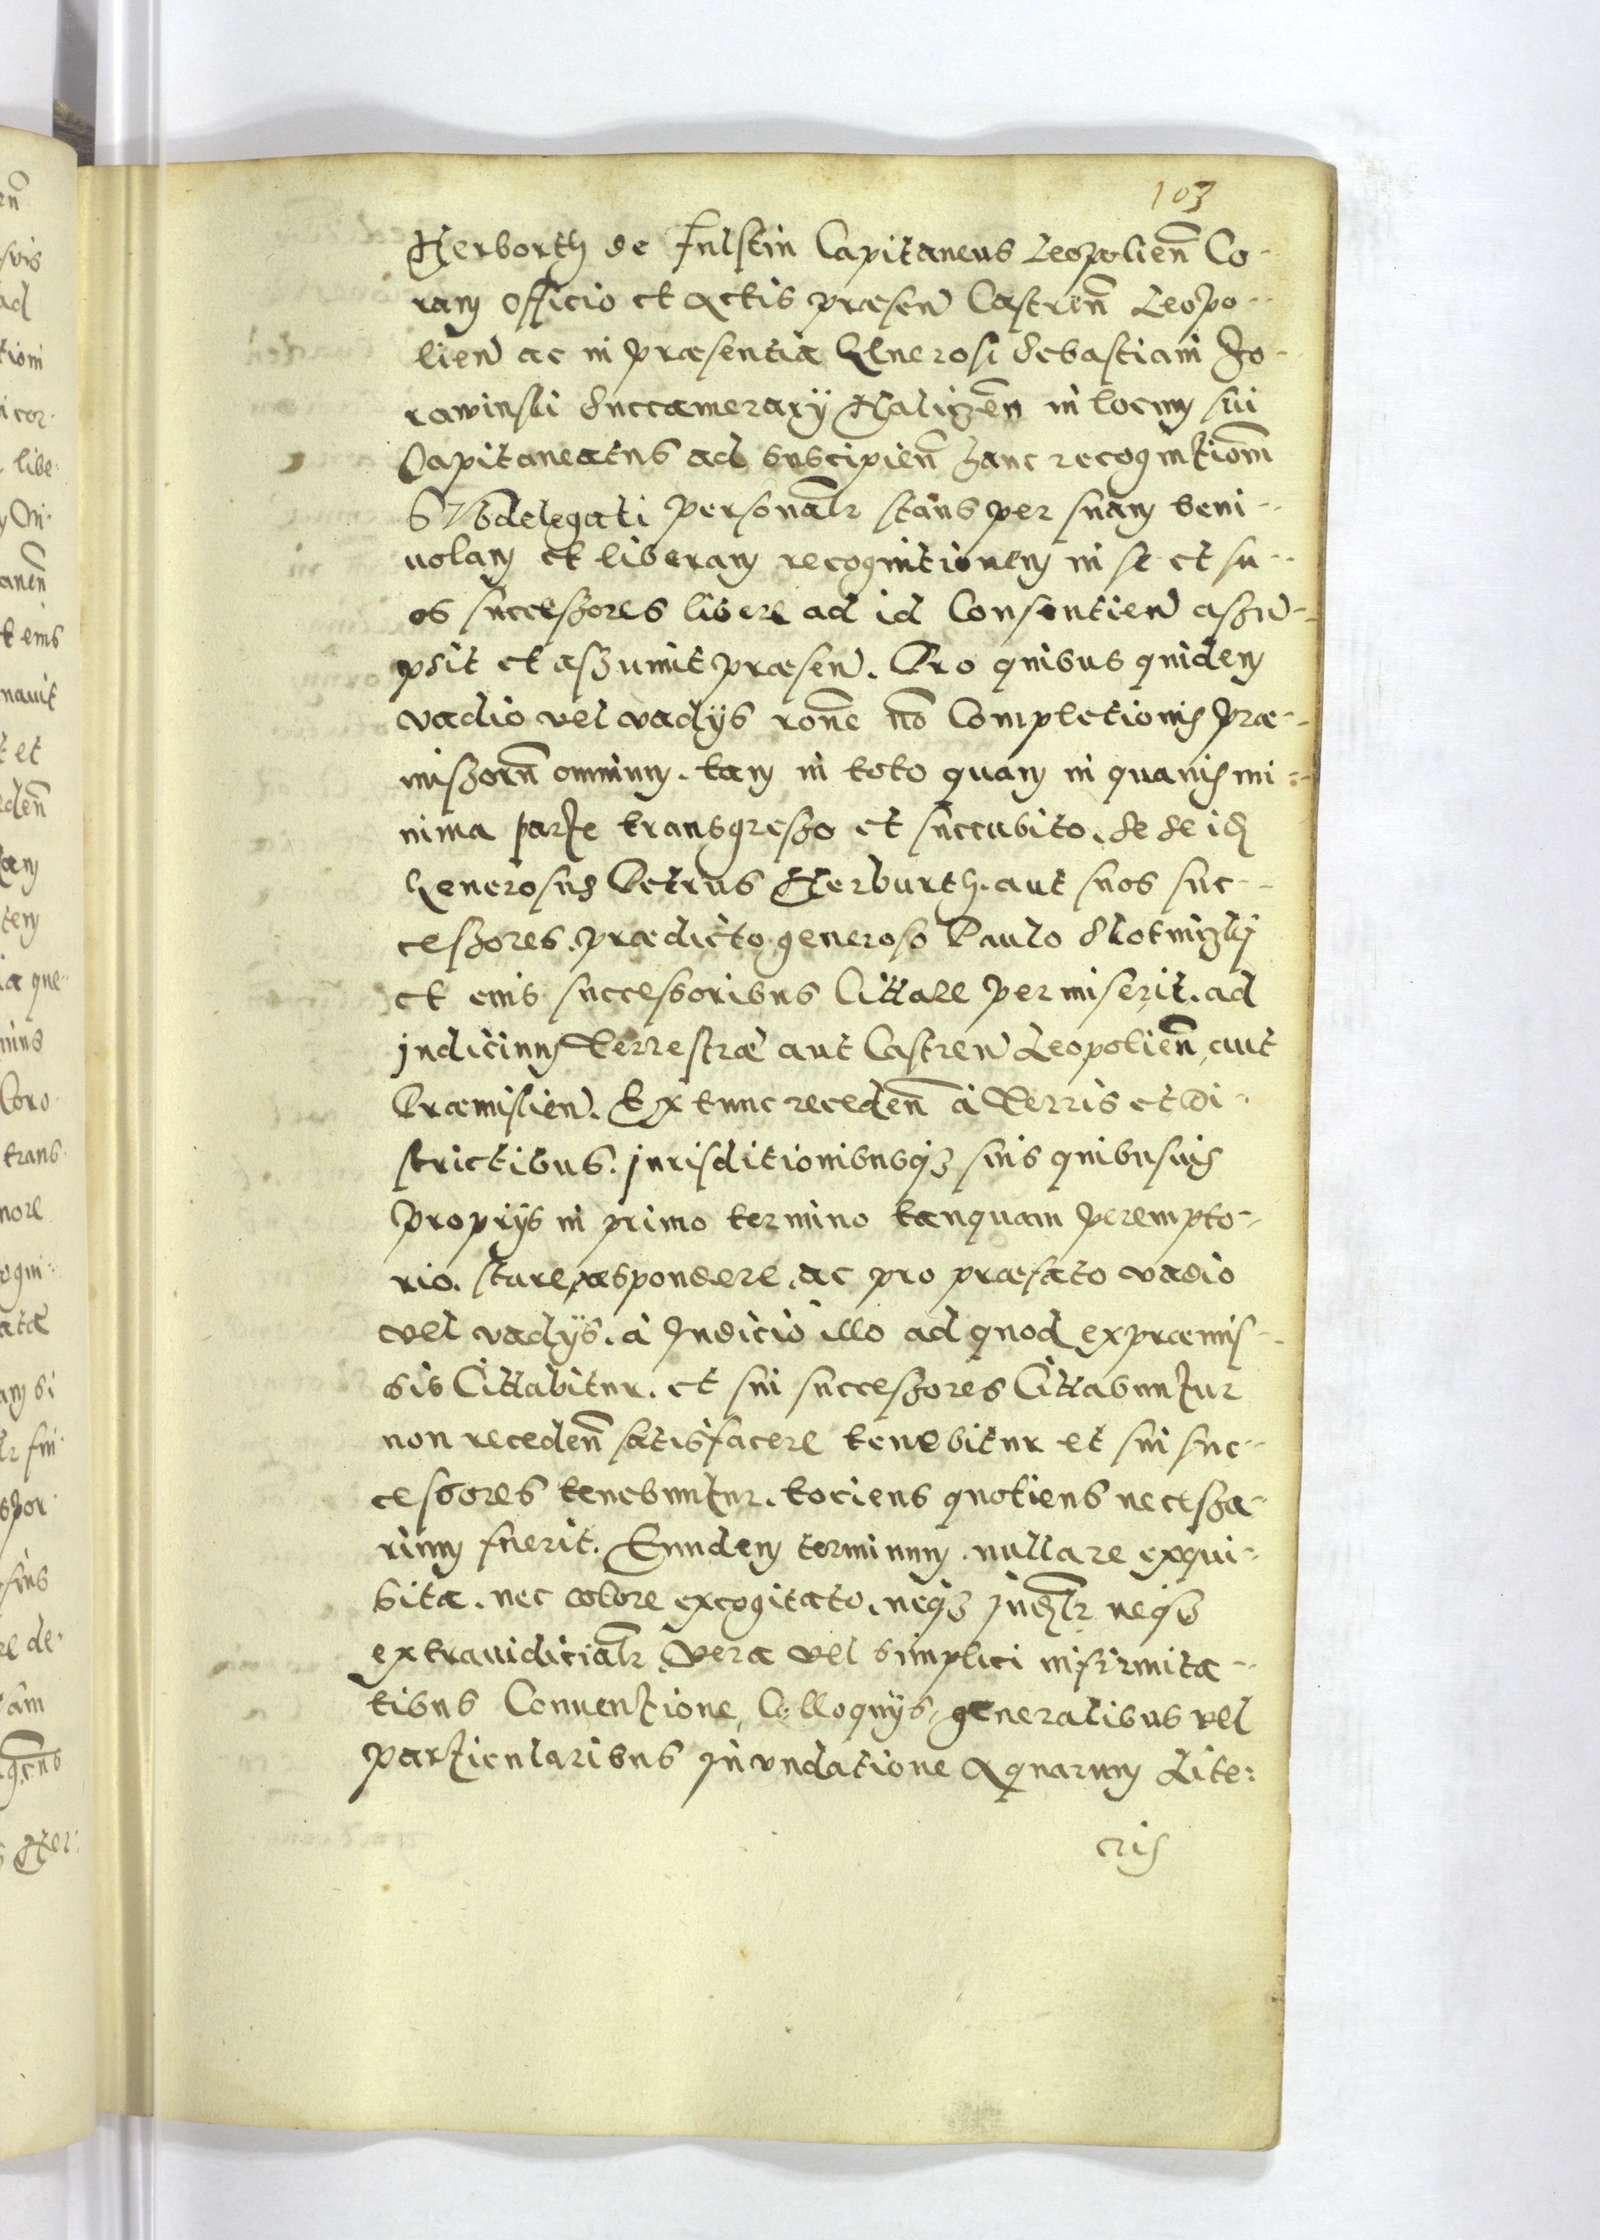 103
Herborth de Fulstin Capitaneus Leopolien̄ Co-
ram Officio et Actis præsen̄ Castren̄ Leopo-
lien̄ ac in præsentia Generosi Sebastiani Zo-
rawinski Succamerarÿ Halicen̄ in locum sui
Capitaneatus ad suscipien̄ hanc recognitionem
Subdelegati personalr stans per suam beni-
uolam et liberam recognitionem in se et su-
os successores libere ad id Consentien̄ assu-
psit et assumit præsen̄. Pro quibus quidem
vadio vel vadÿs rone no Completionis præ-
missorum omnium. tam in toto quam in quauis mi-
nima parte transgresso et succubito. Se de id
Generosus Petrus Herburth. aut suos suc-
cessores. prædicto generoso Paulo
et eius successoribus Cittare permiserit. ad
judicium Terrestræ aut Castren̄ Leopolien̄, aut
Præmislien̄. Ex tunc receden̄ à Terris et Di-
strictibus. jurisditionibusq3 suis quibusuis
proprÿs in primo termino tanquam perempto-
rio. stare, respondere, ac pro præfato vadio
vel vadÿs. à Judicio illo ad quod ex præmis-
sis Cittabitur. et sui successores Cittabuntur
non receden̄ satisfacere tenebitur et sui suc-
cessores tenebuntur. tociens quotiens necessa-
rium fuerit. Eundem terminum. nulla re exqui-
sita. nec colore excogitato. neq3 judlr neq3
extraiudicialr. Vera vel simplici infirmita-
tibus Conuentione, Colloquÿs, generalibus vel
particularibus Inundatione Aquarum Lite:
ris